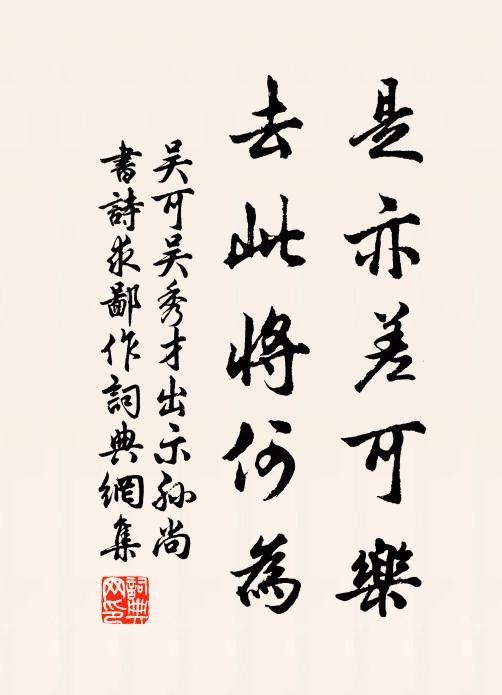 是亦差可樂
去此將何為
吳可吳秀才出示孫尚
書詩求鄙作詞典網集
詞典網印